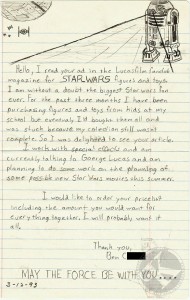 Hello, I read your ad in the Lucasfilm fanclub
magazine for STAR WARS figures and toys.
I am without a doubt the biggest Star Wars fan
ever. For the past three months I have been
purchasing figures and toys from kids at my
school but eventually I'd bought them all and
was stuck because my collection still wasn't
complete. So I was delighted to see your article.
I work with special effects and am
currently talking to George Lucas and am
planning to do some work on the planning of
some possible new Star Wars movies this summer.
I would like to order your pricelist
including the amount you would want for
everything together. I will probably want it
all.
Thank you,
Ben
MAY THE FORCE BE WITH YOU....
3-12-93